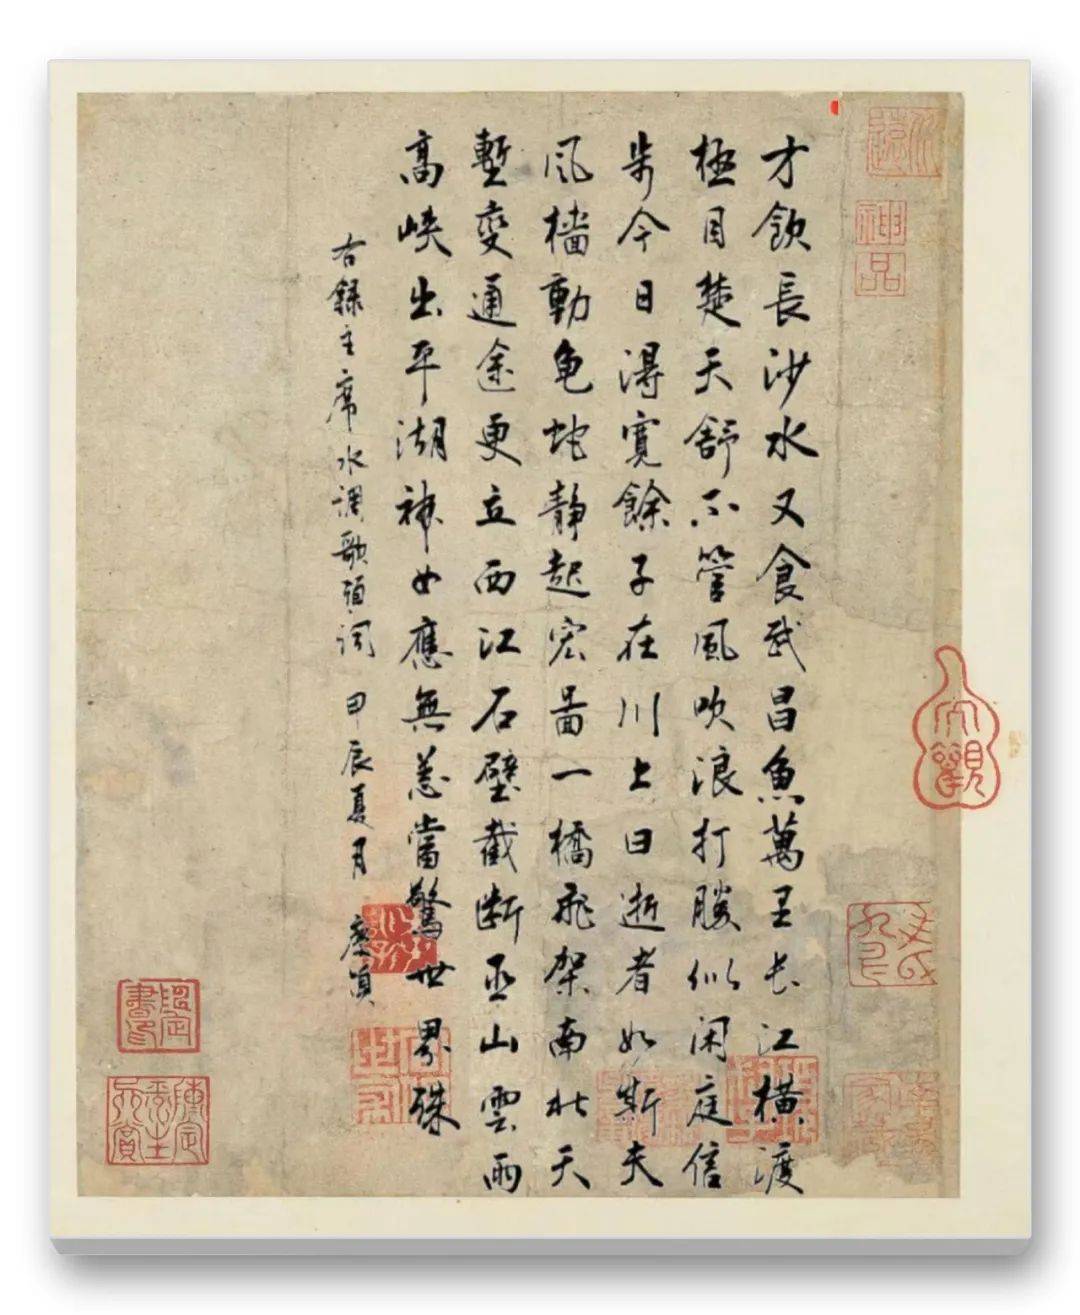 才飲長沙水又食武昌魚萬里长江横渡
極目楚天舒不管風吹浪打勝似闲庭信
步今日得寬餘子在川上曰逝者如斯夫
风檣動龟蛇静起宏啚一橋飛架南北天
塹變通途更立西江石壁截断巫山雲雨
高峡出平湖神女應無恙當驚世界殊
右録主席水调歌頭词 甲辰夏月
神品
大觀